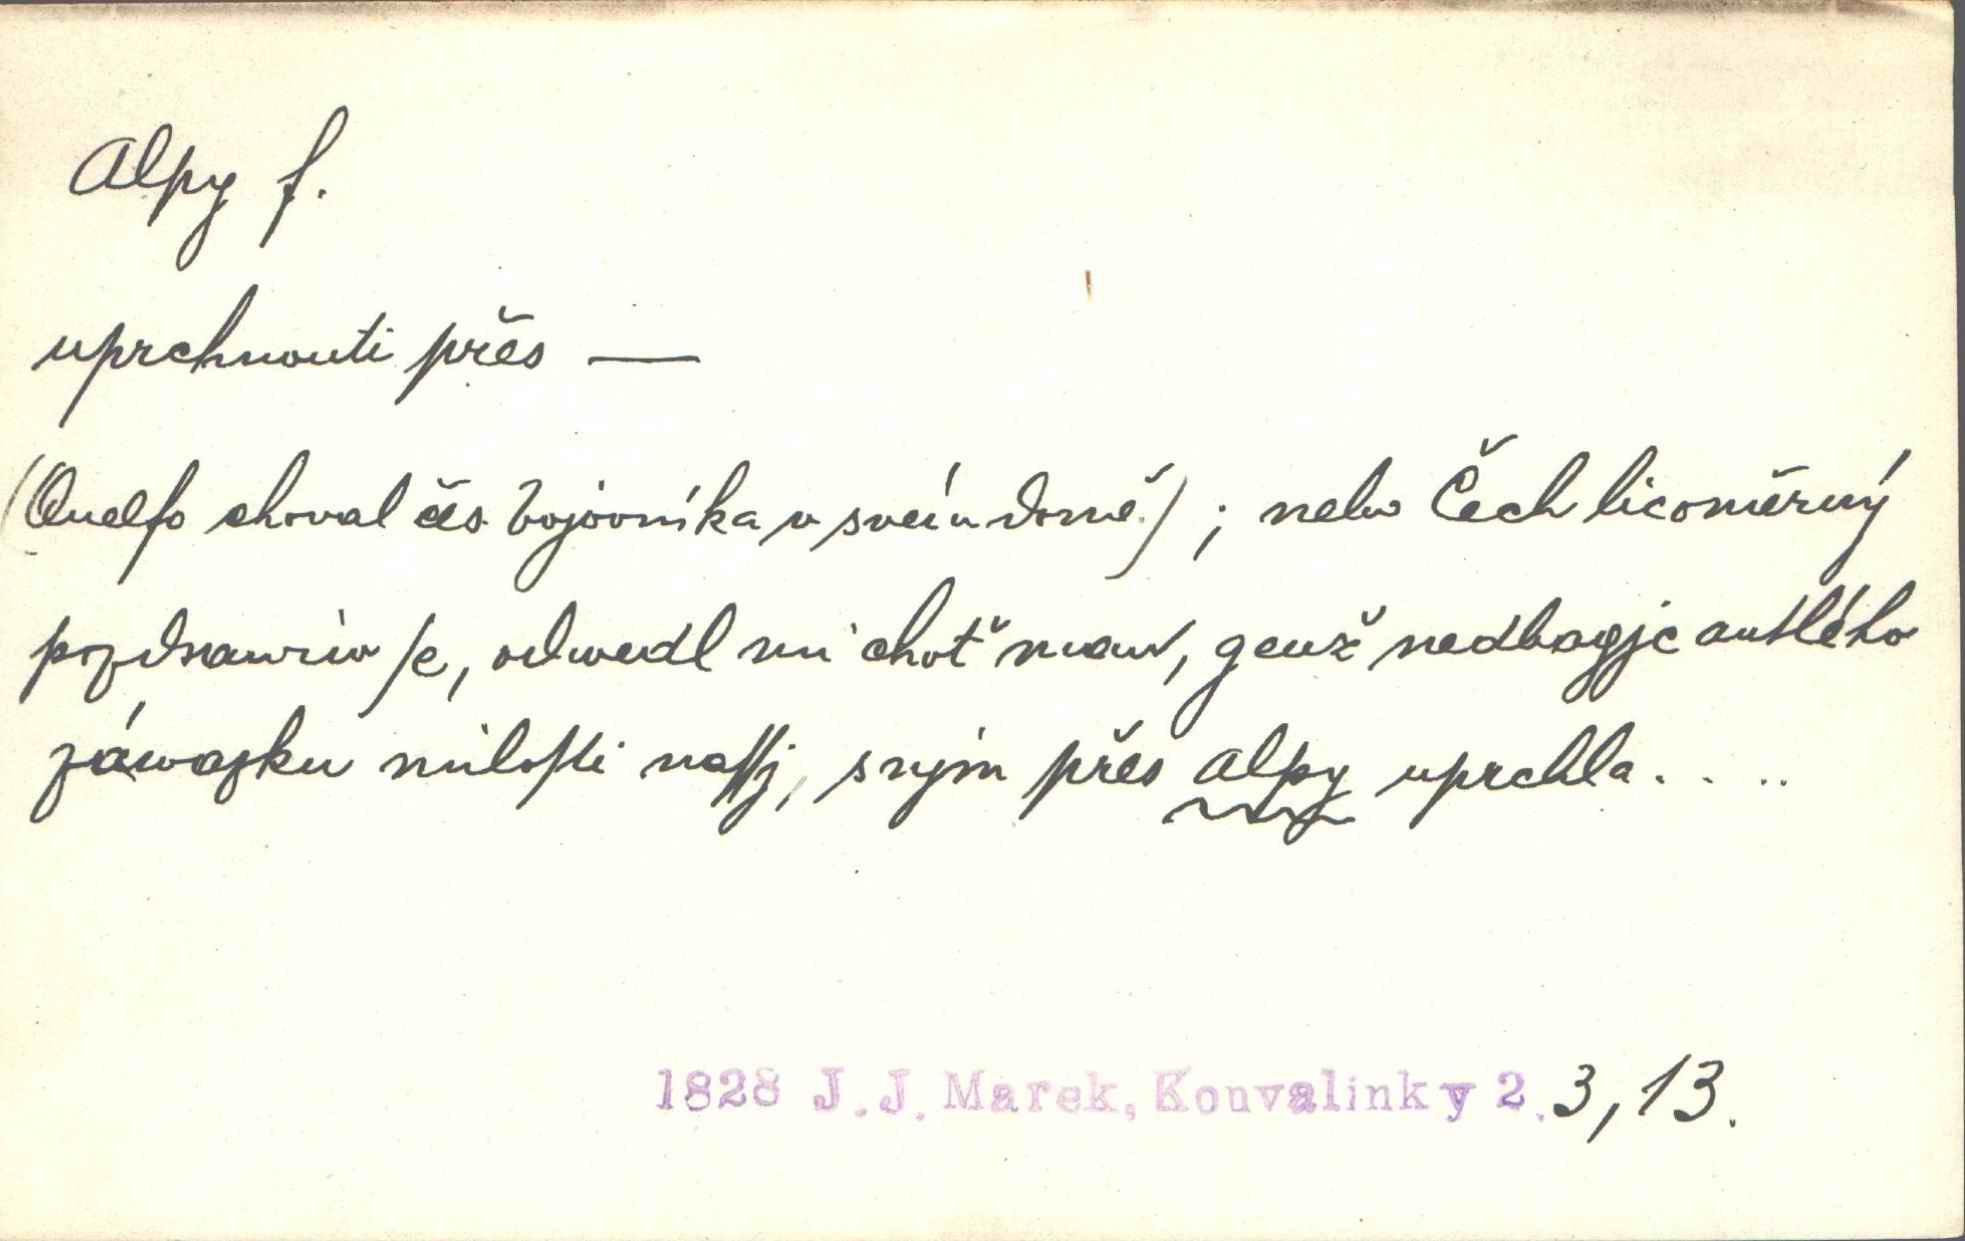 Alpy f.
uprchnouti přes —
(Quelfo choval čes. bojovníka v svém domě.) ; nebo Čech licoměrný
pozdrawiw se, odwedl mi choť mau, genž nedbagjc autlého
záwazku milosti nassj, s ným přes Alpy uprchla. . ..
1828 J.J. Marek, Konvalinky 2. 3, 13.